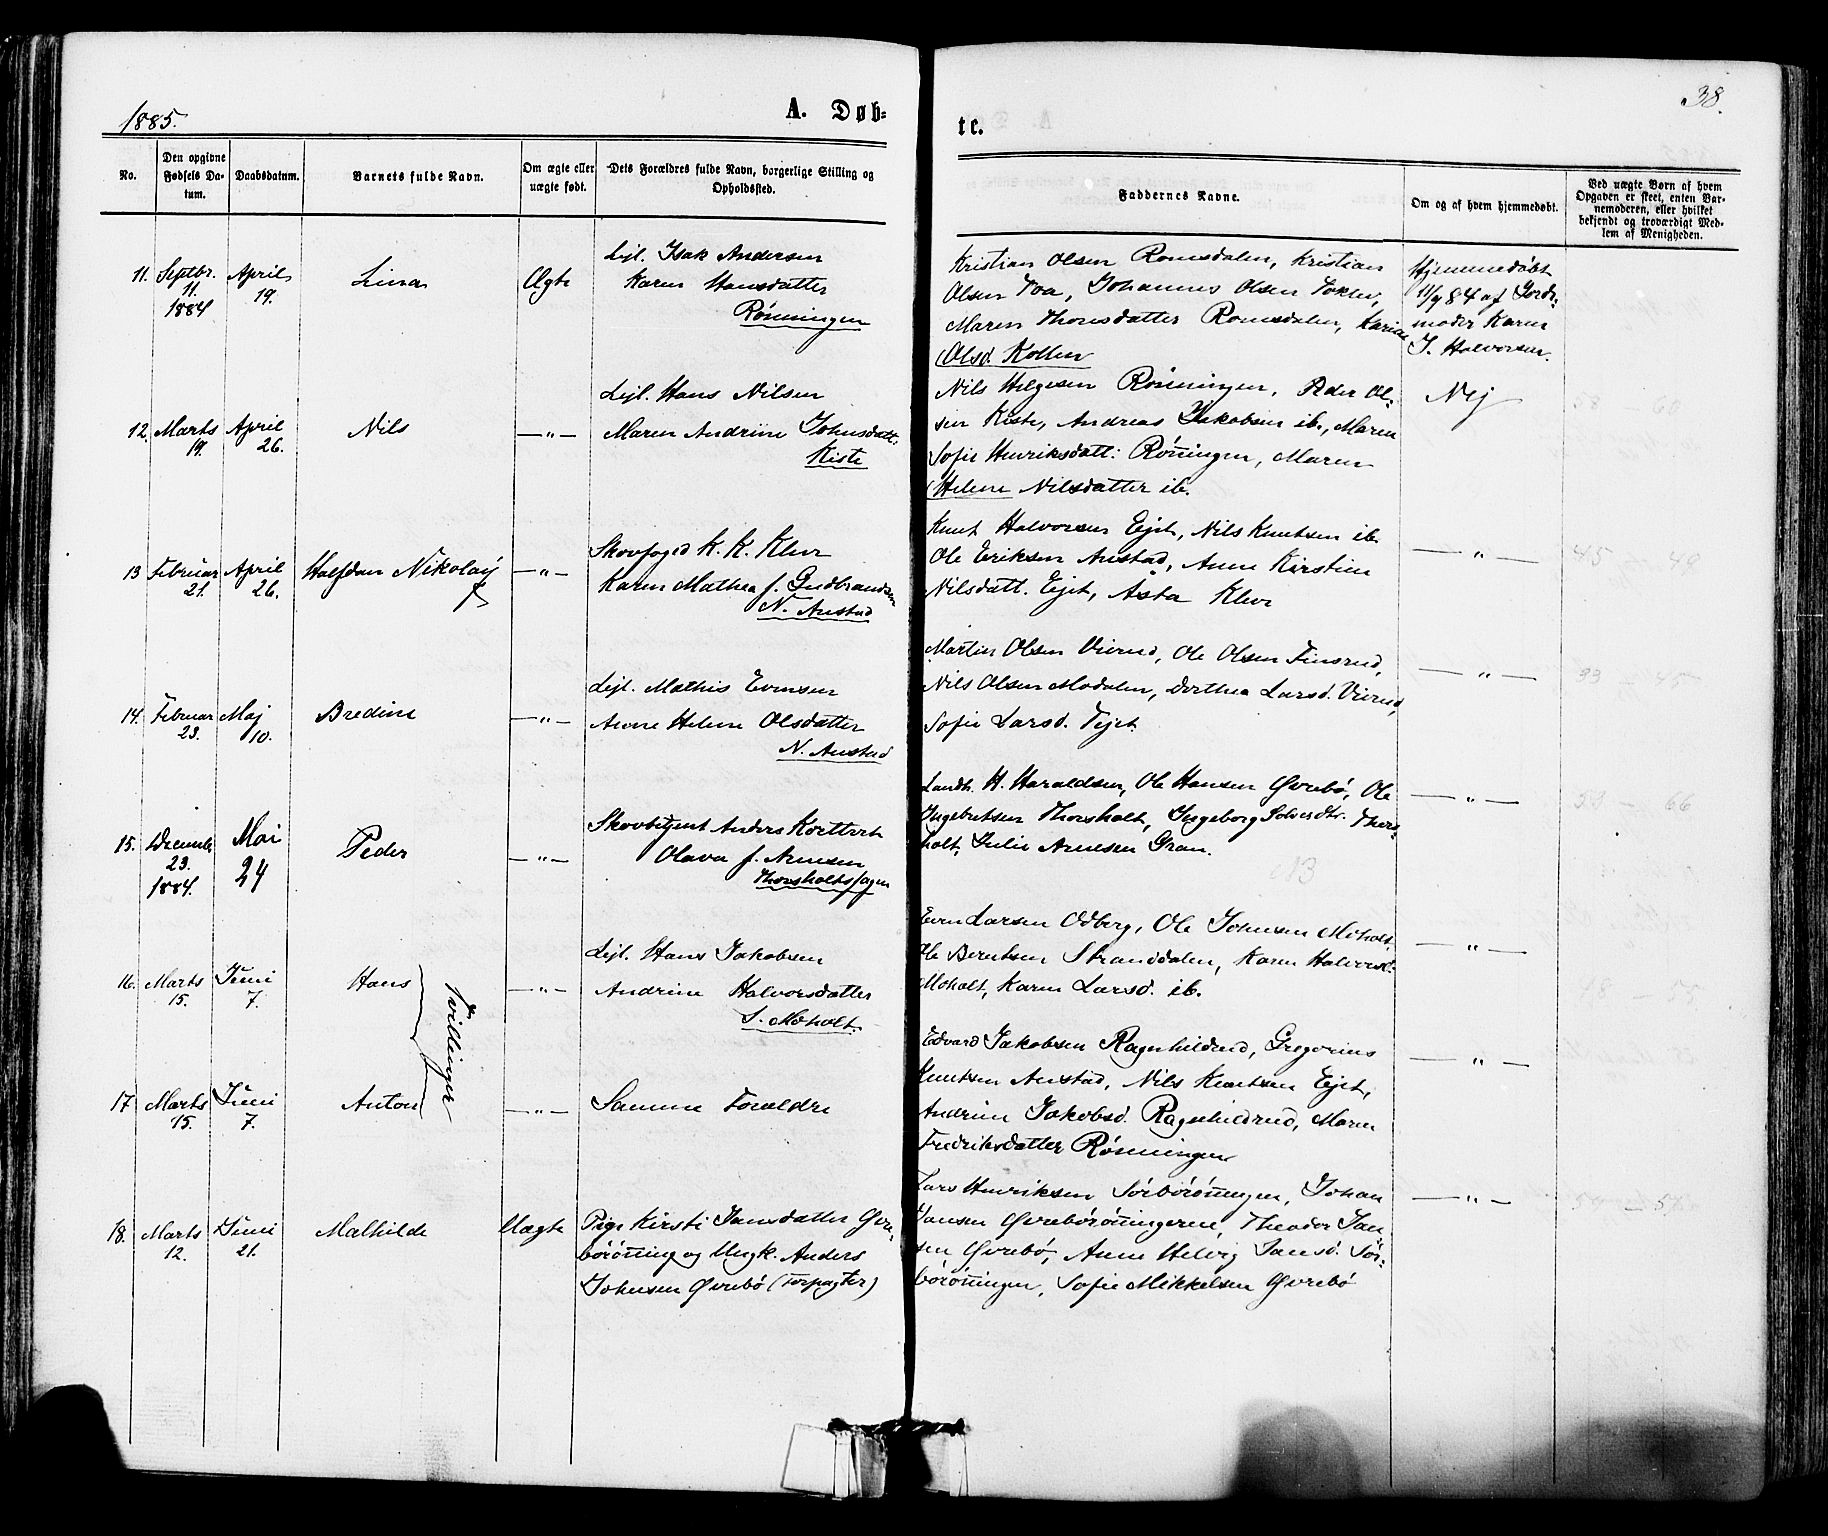 1885.
A. Døb=
te.
38.
No.
Den opgivne Fødsels Da-tum.
Daabsdatum.
Barnets fulde Navn.
Om ægte eller uægte født.
Dets Forældres fulde Navn, borgerlige Stilling og Opholdssted.
Faddernes Navne.
Om og af hvem hjemmedøbt.
Ved uægte Børn af hvem Opgaven er skeet, enten Bar-nemoderen, eller hvilket bekjendt og troværdigt Med-lem af Menigheden.
11. Septbr. 11. 1884
April 19.
Lina
Ægte
Lejl. Isak Andersen
Karen Hansdatter
Rønningen
Kristian Olsen Romsdalen, Kristian
Olsen Moa, Johannes Olsen
Maren Thomsdatter Romsdalen, Karine
Olsd. Kollen
Hjemmedøbt
11/9 84 af Jorde-
moder Karen
J. Halvorsen.
12. Marts 19.
April 26.
Nils
—"—
Lejl. Hans Nilsen
Maren Andrine Johnsdatt.
Kiste
Nils Helgesen Rønningen, Peder Ol-
sen Kiste, Andreas Jakobsen ib., Maren
Sofie Henriksdatt: Rønningen, Maren
Helene Nilsdatter ib.
Nej
13 Februar 21.
April 26.
Halfdan Nikolaÿ
—"—
Skovfoged K. K. Klev
Karen Mathea f. Gudbrandsen
N. Austad
Knut Halvorsen Ejet, Nils Knutsen ib.
Ole Eriksen Austad, Anne Kirstine
Nilsdatt. Ejet, Asta Klev
—"—
45 49
14. Februar 23.
Maj 10.
Bredine
—"—
Lejl. Mathis Evensen
Anne Helene Olsdatter
N. Austad
Martin Olsen Vierud, Ole Olsen Finsrud,
Nils Olsen Modalen, Dorthea Larsd. Vierud,
Sofie Larsd. Ejet.
—"—
15. December 23. 1884.
Mai 24
Peder
—"—
Skovbetjent Anders
Olava f. Arnesen
Thorsholtshagen
Landh. H. Haraldsen, Ole Hansen Øvrebø, Ole
Ingebretsen Thorsholt, Ingeborg Solvesdtr. Thors-
holt, Julie Arnesen Gran.
—"—
66
NB
16. Marts 15.
Juni 7.
Hans
Tvillinger
—"—
Lejl. Hans Jakobsen
Andrine Halvorsdatter
S. Moholt.
Even Larsen Odberg, Ole Johnsen Moholt,
Ole Berntsen Stranddalen, Karen Halvorsd.
Moholt, Karen Larsd. ib.
—"—
17. Marts 15.
Juni 7.
Anton
—"—
Samme Forældre
Edvard Jakobsen Ragnhildrud, Gregorius
Knutsen Austad, Nils Knutsen Ejet,
Andrine Jakobsd. Ragnhildrud, Maren
Fredriksdatter Rønningen
—"—
18. Marts 12.
Juni 21.
Mathilde
Uægte
Pige Kirsti Jansdatter Øvre-
børønning og Ungk. Anders
Johnsen Øvrebø (Forpagter)
Lars Henriksen Sørbørønningen, Johan
Jansen Øvrebørønningerne, Theodor Jan-
sen Øvrebø, Anne Helvig Jansd. Sør-
børønningen, Sofie Mikkelsen Øvrebø
—"—